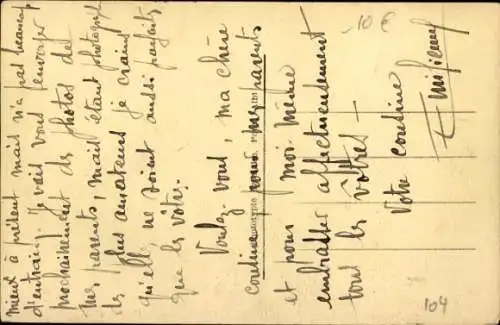 mieux à présent mais n'a pas beaucoup
d'entrain. Je vais vous envoyer
prochainement des photos de
mes parents, mais étant photographe
des plus amateurs je crains
qu'elle ne soient aussi parfaits
que les vôtres.
Voulez-vous, ma chère
cousine pour mes parents
et pour moi-même
embrasser affectueusement
tous les vôtres –
Votre cousine
-10 €
104